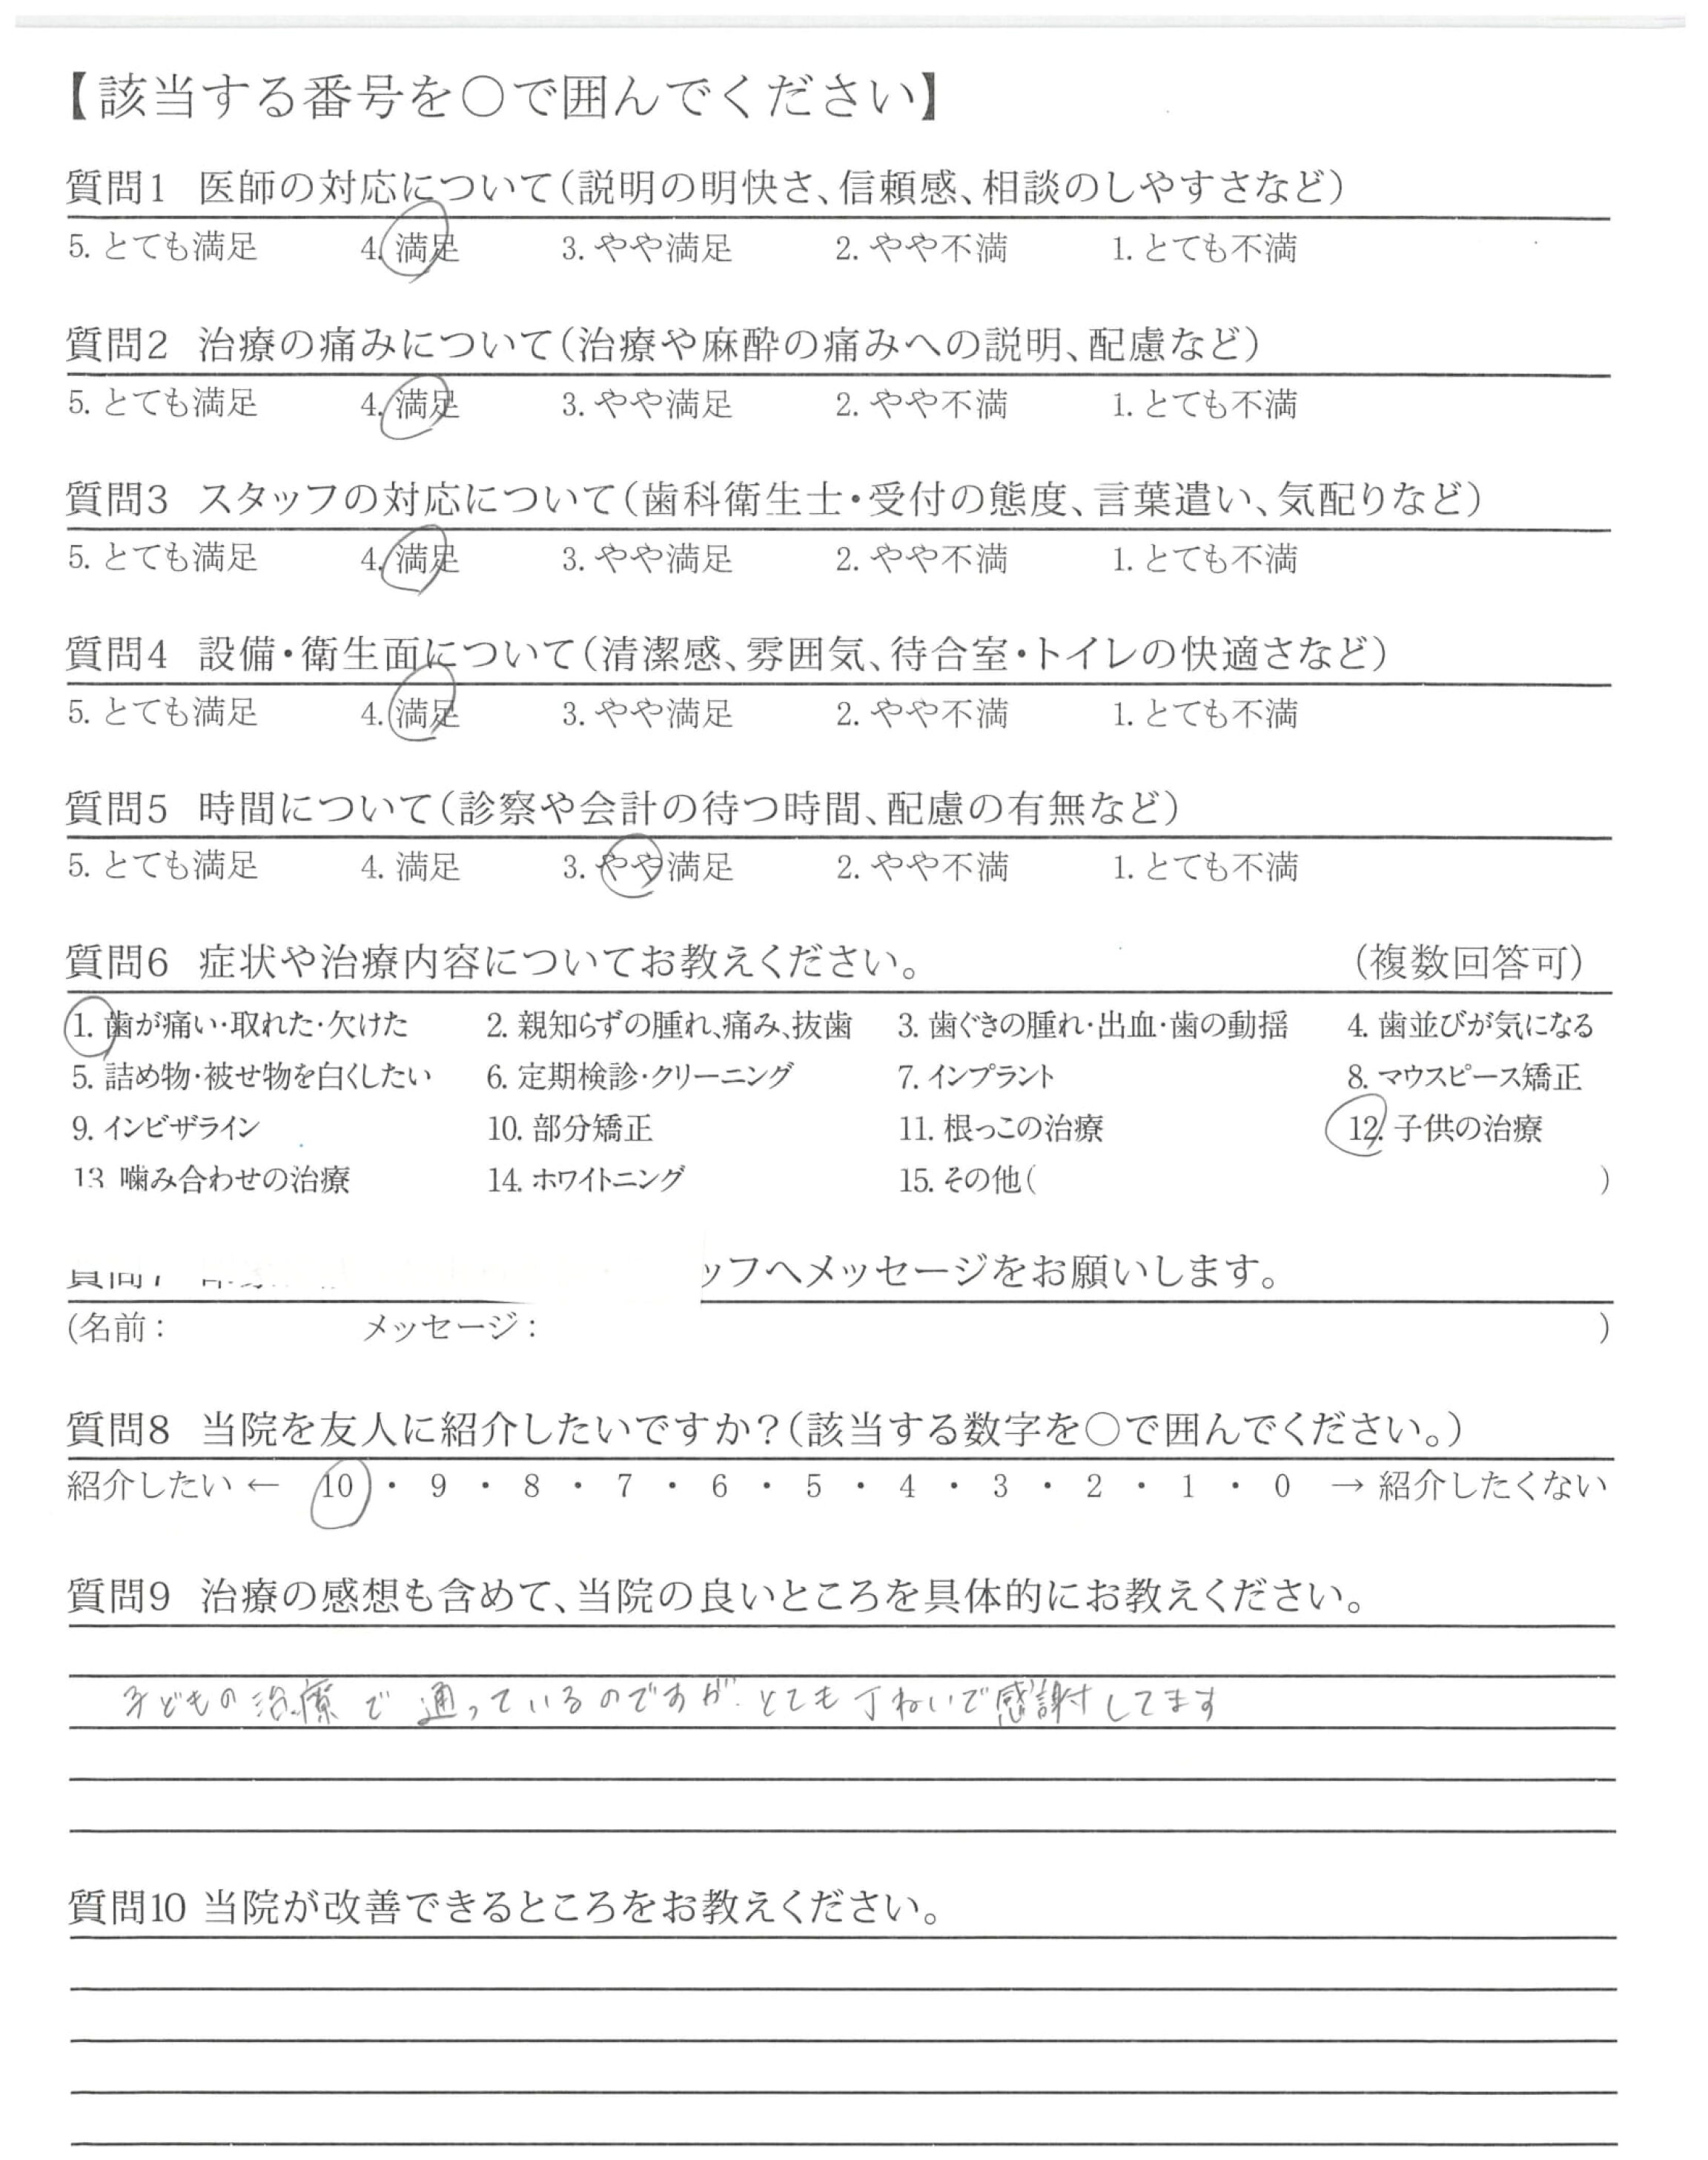 【該当する番号を○で囲んでください】
質問1 医師の対応について(説明の明快さ、信頼感、相談のしやすさなど)
5. とても満足 4. 満足 3. やや満足 2. やや不満 1. とても不満
質問2 治療の痛みについて(治療や麻酔の痛みへの説明、配慮など)
5. とても満足 4. 満足 3. やや満足 2. やや不満 1. とても不満
質問3 スタッフの対応について(歯科衛生士・受付の態度、言葉遣い、気配りなど)
5. とても満足 4. 満足 3. やや満足 2. やや不満 1. とても不満
質問4 設備・衛生面について(清潔感、雰囲気、待合室・トイレの快適さなど)
5. とても満足 4. 満足 3. やや満足 2. やや不満 1. とても不満
質問5 時間について(診察や会計の待つ時間、配慮の有無など)
5. とても満足 4. 満足 3. やや満足 2. やや不満 1. とても不満
質問6 症状や治療内容についてお教えください。 (複数回答可)
1. 歯が痛い・取れた・欠けた 2. 親知らずの腫れ、痛み、抜歯 3. 歯ぐきの腫れ・出血・歯の動揺 4. 歯並びが気になる
5. 詰め物・被せ物を白くしたい 6. 定期検診・クリーニング 7. インプラント 8. マウスピース矯正
9. インビザライン 10. 部分矯正 11. 根っこの治療 12. 子供の治療
13 噛み合わせの治療 14. ホワイトニング 15. その他( )
ッフへメッセージをお願いします。
(名前: メッセージ: )
質問8 当院を友人に紹介したいですか?(該当する数字を○で囲んでください。)
紹介したい ← 10 ・ 9 ・ 8 ・ 7 ・ 6 ・ 5 ・ 4 ・ 3 ・ 2 ・ 1 ・ 0 → 紹介したくない
質問9 治療の感想も含めて、当院の良いところを具体的にお教えください。
子どもの治療で通っているのですが、とても丁ねいで感謝してます
質問10 当院が改善できるところをお教えください。